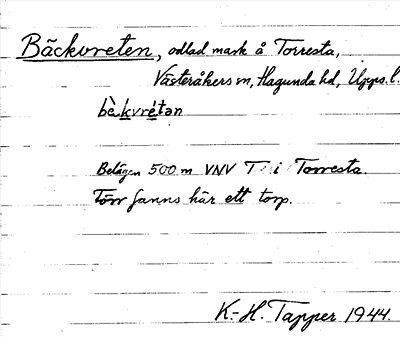 Bäckvreten, odlad mark å Torresta,
Västeråkers sn, Hagunda hd, Upps. l.
bè̀kvré̀tan
Belägen 500 m VNV T i Torresta.
Förr fanns här ett torp.
K.-H. Tapper 1944.